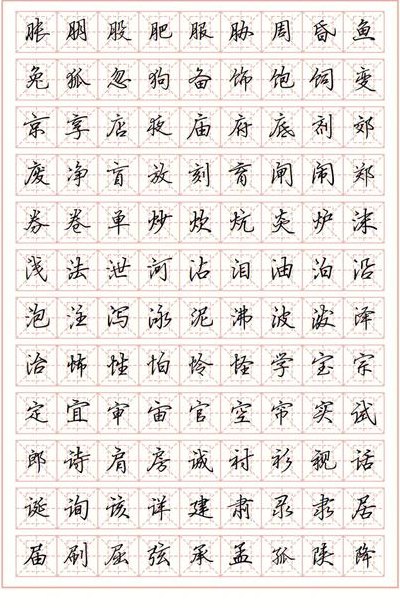 胀朋股肥服胁周昏鱼
兔狐忽狗备饰饱饲变
京享店夜庙府底剂郊
废净盲放刻育闸闹郑
券卷单炒炊炕炎炉沫
浅法泄河沾泪油泊沿
泡注泻泳泥沸波泼泽
治怖性怕怜怪学宝宗
定宜审宙官空帘实试
郎诗肩房诚衬衫视话
诞询该详建肃录隶居
届刷屈弦承孟孤陕降